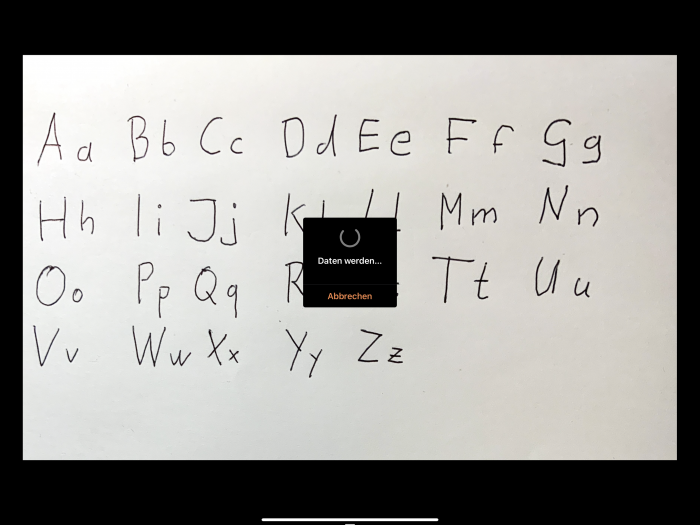 Aa Bb Cc Dd Ee Ff Gg
Hh Ii Jj Mm Nn
Daten werden...
Abbrechen
Oo Pp Qq Tt Uu
Vv Ww Xx Yy Zz